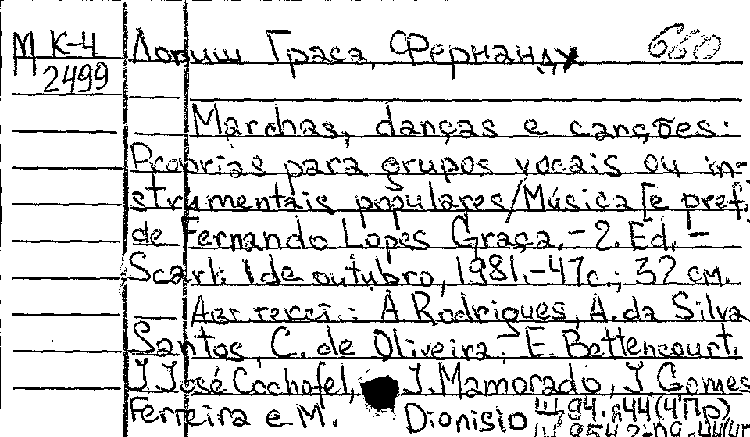 М К-4 Лопиш Граса, Фернанду 660
М 2499
Marchas, danças e canções:
Proprias para grupos vocais ou in-
strumentais populares/Música [e pref.
de Fernando Lopes Graça.-2. Ed.-
1 de outubro, 1981.-47с.; 32 см.
Авт. текст.: A Rodrigues, A. da Silva
Santos, C. de Oliveira, E. Bettencourt,
J. José Cochofel, J. Mamorado, J Gomes
Ferreira e M. Dionisio Щ94.я44(4Пр)